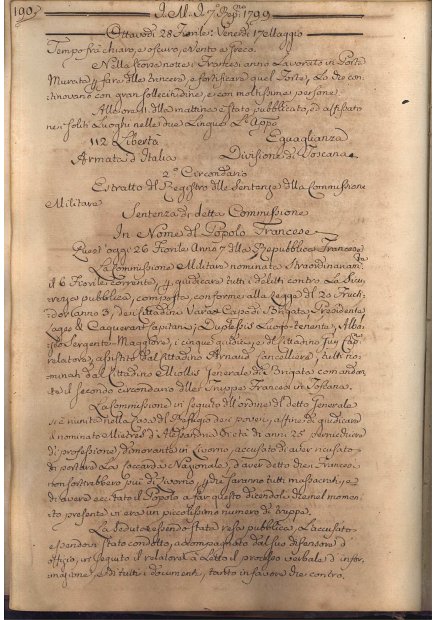 190
J. M. J. 7º Rep.no 1799
Ottavodì 28 Fiorile: Venerdì 17 Maggio
Tempo frà chiaro, e oscuro, e vento a Greco.
Nella scorsa notte i Francesi anno Lavorato in Porta
Murata p fare delle trincere, e fortificare quel Forte, Lo che con-
tinovano con gran sollecitudine, e con moltissime persone.
Alle ore della mattina è stato pubblicato, ed affissato
nei soliti Luoghi nelle due Lingue L'app.o
112 Libertà Eguaglianza
Armata d'Italia Divisione di Toscana
2º Circondario
Estratto dl Registro dlle Sentenze dlla Commissione
Militare
Sentenza di detta Commissione
In Nome dl Popolo Francese
Quest'oggi 26 Fiorile Anno 7 dlla Repubblica Francese
La Commissione Militare nominata Straordinariam.te
il 6 Fiorile corrente, p giudicare tutti i delitti contro La Sicu-
rezza pubblica, composta, conforme alla Legge dl 20 Fruct-
dor anno 3, dei Cittadini Capo di Brigata Presidente
Lages & Caquerant Capitani, Duplessis Luogo-tenente,
Sergente-Maggiore, i cinque giudici, e dl Cittadino Cap.
relatore, assistito dal Cittadino Arnaud Cancelliere, tutti no-
minati dal Cittadino Miollis Generale di Brigata comandan-
te il secondo circondario dlle Truppe Francesi in Toscana.
La Commissione in seguito dll'ordine dl detto Generale
si è riunita nella Casa dl Refugio dei poveri, affine di giudicare
il nominato di Alessandria di età di anni 25
di professione, dimorante in Livorno, accusato di aver ricusato
di portare La Coccarda Nazionale, d'aver detto che i Francesi
non sortirebbero più di Livorno, p che saranno tutti massacrati, e
di avere eccitato il Popolo a far questo dicendoli che nel momen-
to presente vi era un piccolissimo numero di truppe.
La Seduta essendo stata resa pubblica, L'accusato
essendovi stato condotto, accompagnato dal suo difensore d'
offizio, in seguito il relatore à Letto il processo verbale d'infor-
mazione, e di tutti i documenti, tanto in favore che contro.